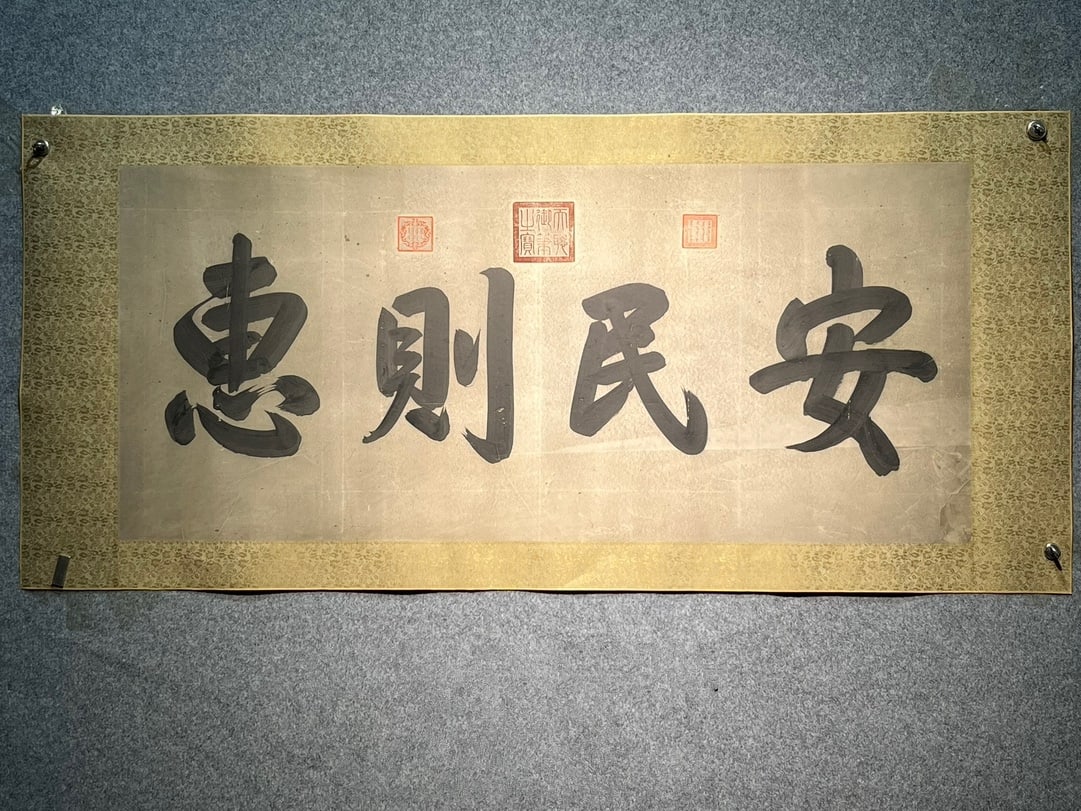 安民則惠